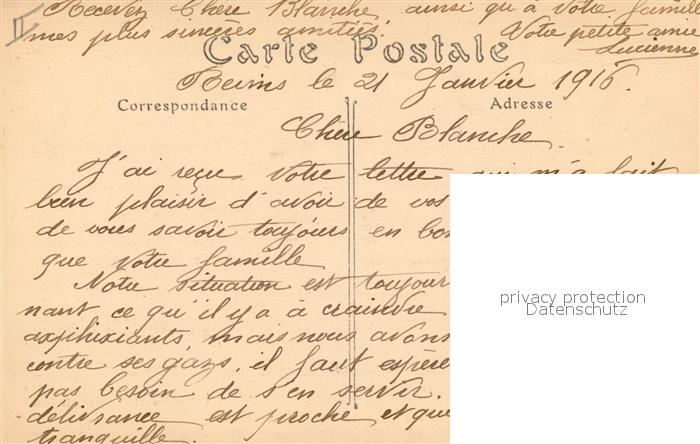 II
Recevez Chère Blanche ainsi qu'à votre famille
mes plus sincères amitiés. Votre petite amie
Lucienne
Carte Postale
Reims le 21 Janvier 1916.
Correspondance
Adresse
Chère Blanche.
J'ai reçu votre lettre qui m'a fait
bien plaisir d'avoir de vos
de vous savoir toujours en
que votre famille
Notre situation est toujour
nant ce qu'il y a à craindre
axphixiants, mais nous avons
contre ses gazs, il faut espère
pas besoin de s'en servir.
délivrance est proche et que
tranquille.
privacy protection
Datenschutz